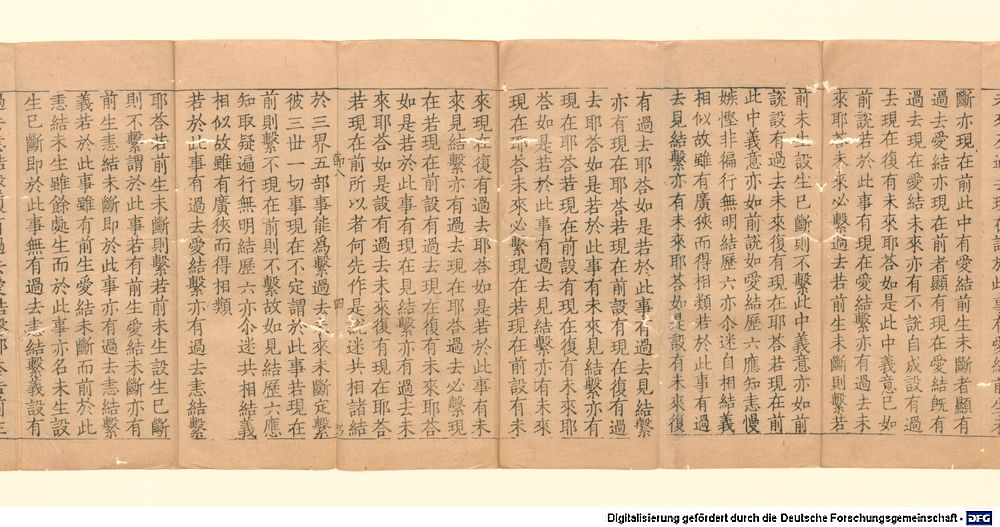 斷亦現在前此中有愛結前生未斷者顯有
過去愛結亦現在前者顯有現在愛結旣有
過去現在愛結未來亦有不說自成設有過
去現在復有未來耶荅如是此中義意已如
前說若於此事有現在愛結繫亦有過去未
來耶荅未來必繫過去若前生未斷則繫若
前未生設生已斷則不繫此中義意亦如前
說設有過去未來復有現在耶荅若現在前
此中義意亦如前說如愛結歷六應知恚慢
嫉慳非徧行無明結歷六亦尒迷自相結義
相似故雖有廣狹而得相類若於此事有過
去見結繫亦有未來耶荅如是設有未來復
有過去耶荅如是若於此事有過去見結繫
亦有現在耶荅若現在前設有現在復有過
去耶荅如是若於此事有未來見結繫亦有
現在耶荅若現在前設有現在復有未來耶
荅如是若於此事有過去見結繫亦有未來
現在耶荅未來必繫現在若現在前設有未
來現在復有過去耶荅如是若於此事有未
來見結繫亦有過去現在耶荅過去必繫現
在若現在前設有過去現在復有未來耶荅
如是若於此事有現在見結繫亦有過去未
來耶荅如是設有過去未來復有現在耶荅
若現在前所以者何先作是說迷共相諸結
於三界五部事能爲繫過去未來未斷定繫
彼三世一切事現在不定謂於此事若現在
前則繫不現在前則不繫故如見結歷六應
知取疑遍行無明結歷六亦尒迷共相結義
相似故雖有廣狹而得相類
若於此事有過去愛結繫亦有過去恚結繫
耶荅若前生未斷則繫若前未生設生已斷
則不繫謂於此事有前生愛結未斷亦有
前生恚結未斷即於此事亦有過去恚結繫
義若於此事雖有前生愛結未斷而前於此
恚結未生雖餘處生而於此事亦名未生設
生已斷即於此事無有過去恚結繫義設有
Digitalisierung gefördert durch die Deutsche Forschungsgemeinschaft - DFG